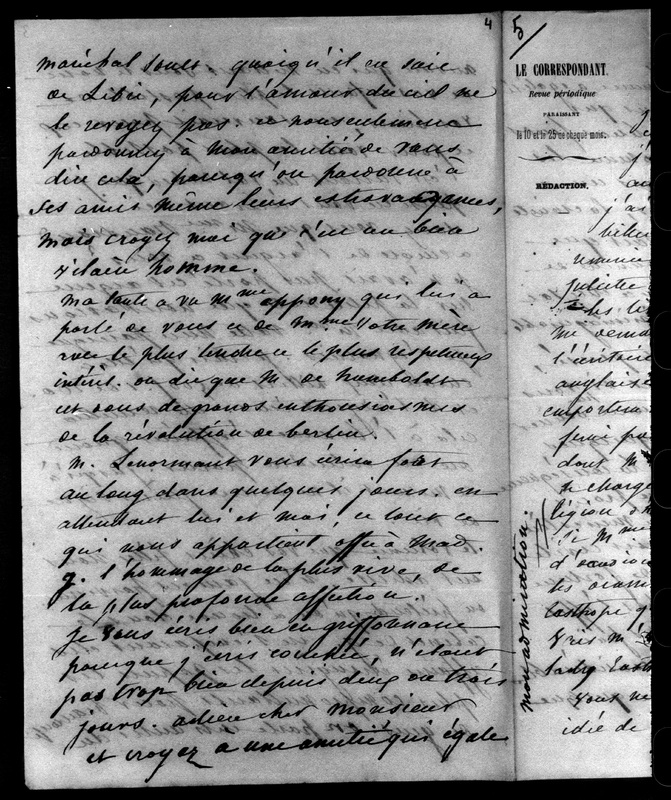 4
maréchal Soult. quoiqu'il en soit
de Libri, pour l'amour du ciel ne
le revoyez pas. ce nonseulement
pardonnez à mon amitié de vous
dire cela, puisqu'on pardonne à
ses amis même leurs extravagances,
mais croyez moi que c'est un bien
vilain homme.
ma tante a vu Mme appony qui lui a
parlé de vous et de Mme votre mère
avec le plus tendre et le plus respectueux
intérêt. on dit que M. de humboldt
est dans de grands enthousiasmes
de la révolution de berlin.
M. Lenormant vous écrira fort
au long dans quelques jours. en
attendant lui et moi, et tout ce
qui nous appartient offre à Mad.
g. l'hommage de la plus vive, de
la plus profonde affection.
je vous écris bien en griffonnant
parceque j'écris couchée, n'étant
pas trop bien depuis deux ou trois
jours. adieu cher monsieur
et croyez à une amitié qui égale
mon admiration.
5
LE CORRESPONDANT.
Revue périodique
PARAISSANT
le 10 et le 25 de chaque mois.
RÉDACTION.
j'ai
juliette
les
me
l'
anglaise
dont M
légion
Si Mme
lady
vous ne
idée de